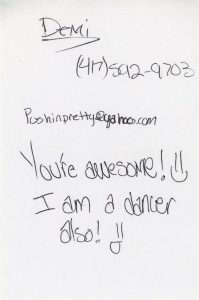 Demi
(417)592-9703
Poshinpretty@yahoo.com
You're awesome! :)
I am a dancer
also! :)